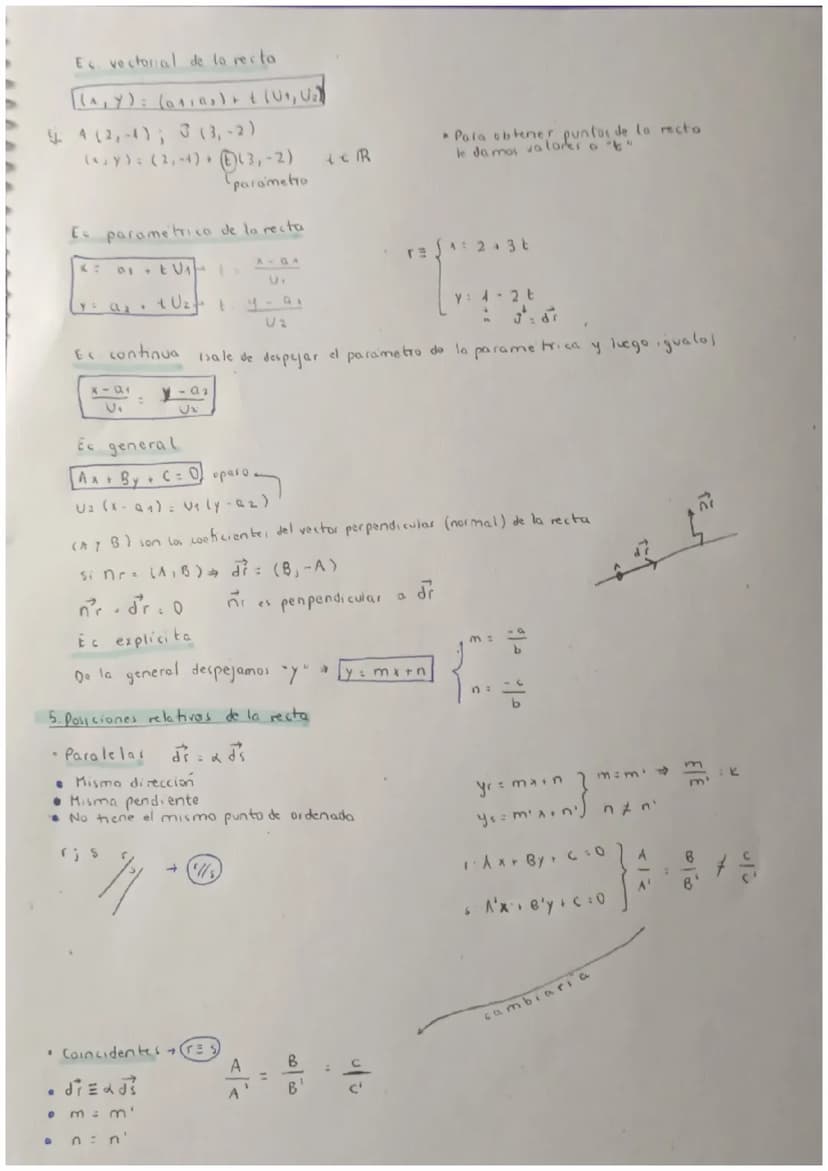 Ec vectorial de la recta
(x, y) = (a1, a2) + t (U1, U2)
Ej A (2, -1) ; J (3, -2)
(x, y) = (2, -1) + t (3, -2) t ∈ ℝ
parámetro
* Para obtener puntos de la recta
le damos valores a "t"
Ec parametrica de la recta
x = a1 + t U1 → t = x - a1 / U1
y = a2 + t U2 → t y - a2 / U2
r ≡ { x = 2 + 3 t
y = 1 - 2 t
J = dr
Ec continua (sale de despejar el parametro de la parametrica y luego igualas
x - a1 / U1 = y - a2 / U2
Ec general
Ax + By + C = 0 opero
U2 (x - a1) = U1 (y - a2)
(A y B) son los coeficientes del vector perpendicular (normal) de la recta
si nr = (A, B) → dr = (B, -A)
nr · dr = 0 nr es penpendicular a dr
nr
dr
Ec explícita
De la general despejamos "y" → y = mx + n
m = -a / b
n = -c / b
5. Posiciones relativas de la recta
• Paralelas dr = α ds
• Misma dirección
• Misma pendiente
• No tiene el mismo punto de ordenada
yr = mx + n } m = m' ⇒ m / m' = K
ys = m'x + n' } n ≠ n'
r ; s r s → r//s
r: Ax + By + C = 0 } A / A' = B / B' ≠ C / C'
s A'x + B'y + C = 0
cambiaria
• Coincidentes → r ≡ s
A / A' = B / B' = C / C'
• dr ≡ α ds
• m = m'
• n = n'